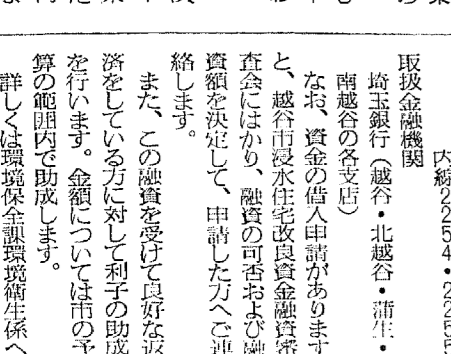 内線2254・2255
取扱金融機関
埼玉銀行(越谷・北越谷・蒲生・
南越谷の各支店)
なお、資金の借入申請があります
と、越谷市浸水住宅改良資金融資審
査会にはかり、融資の可否および融
資額を決定して、申請した方へご連
絡します。
また、この融資を受けて良好な返
済をしている方に対して利子の助成
を行います。金額については市の予
算の範囲内で助成します。
詳しくは環境保全課環境衛生係へ